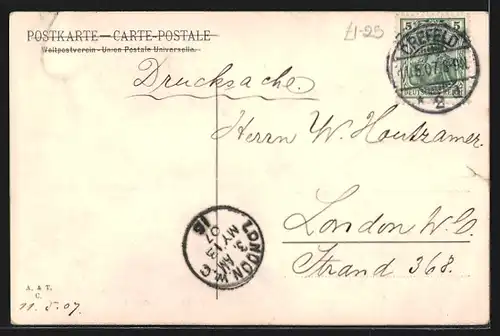 POSTKARTE — CARTE-POSTALE
Weltpostverein - Union Postale Universelle.
£1-25
5 5
CREFELD
11.5.07. 6-
* 2 d
Drucksache.
Herrn W. Houtzamer.
London W.C.
Strand 368.
LONDON W.C
3. AM
MY 13
07
15
A. & T.
C.
11.5.07.